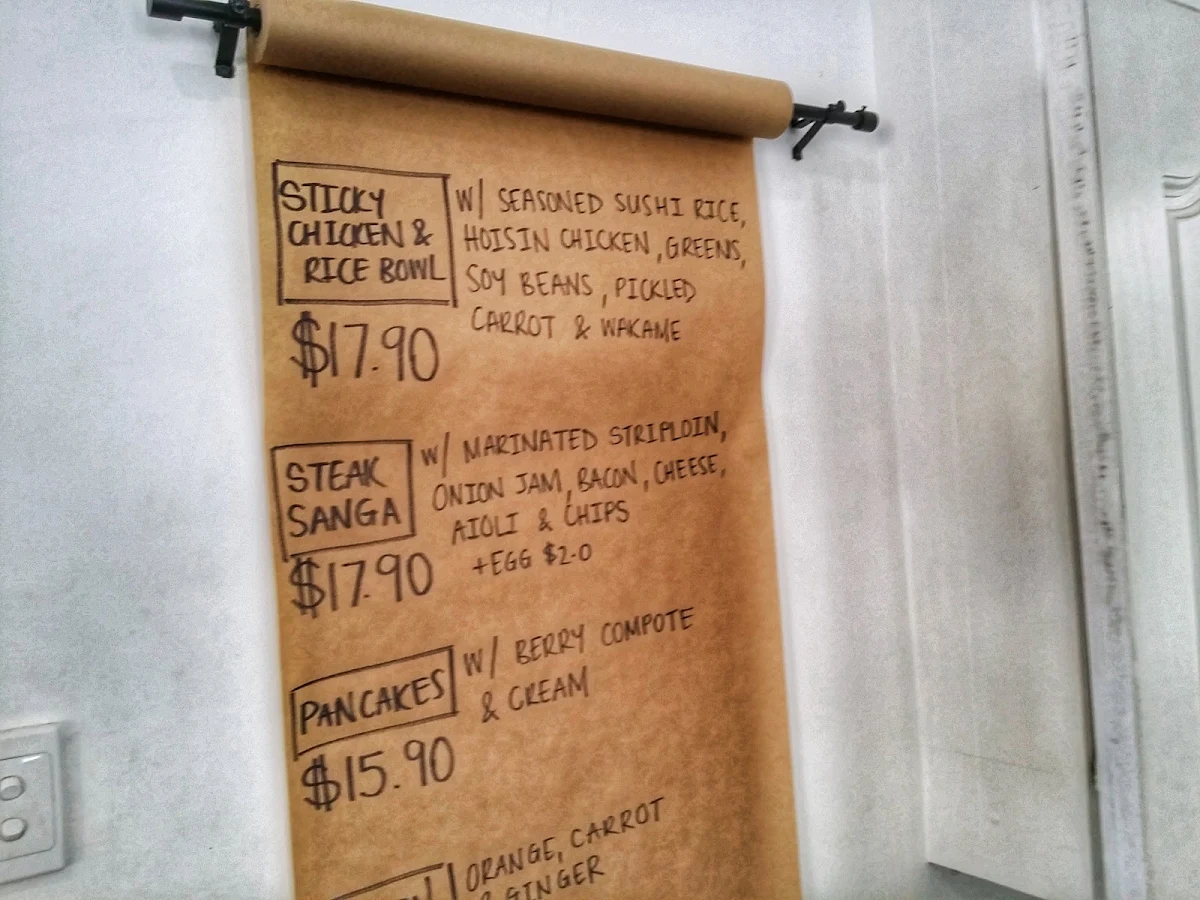 STICKY
CHICKEN &
RICE BOWL
$17.90
W/ SEASONED SUSHI RICE,
HOISIN CHICKEN, GREENS,
SOY BEANS, PICKLED
CARROT & WAKAME
STEAK
SANGA
$17.90
W/ MARINATED STRIPLOIN,
ONION JAM, BACON, CHEESE,
AIOLI & CHIPS
+EGG $2.0
PANCAKES
$15.90
W/ BERRY COMPOTE
& CREAM
ORANGE, CARROT
& GINGER